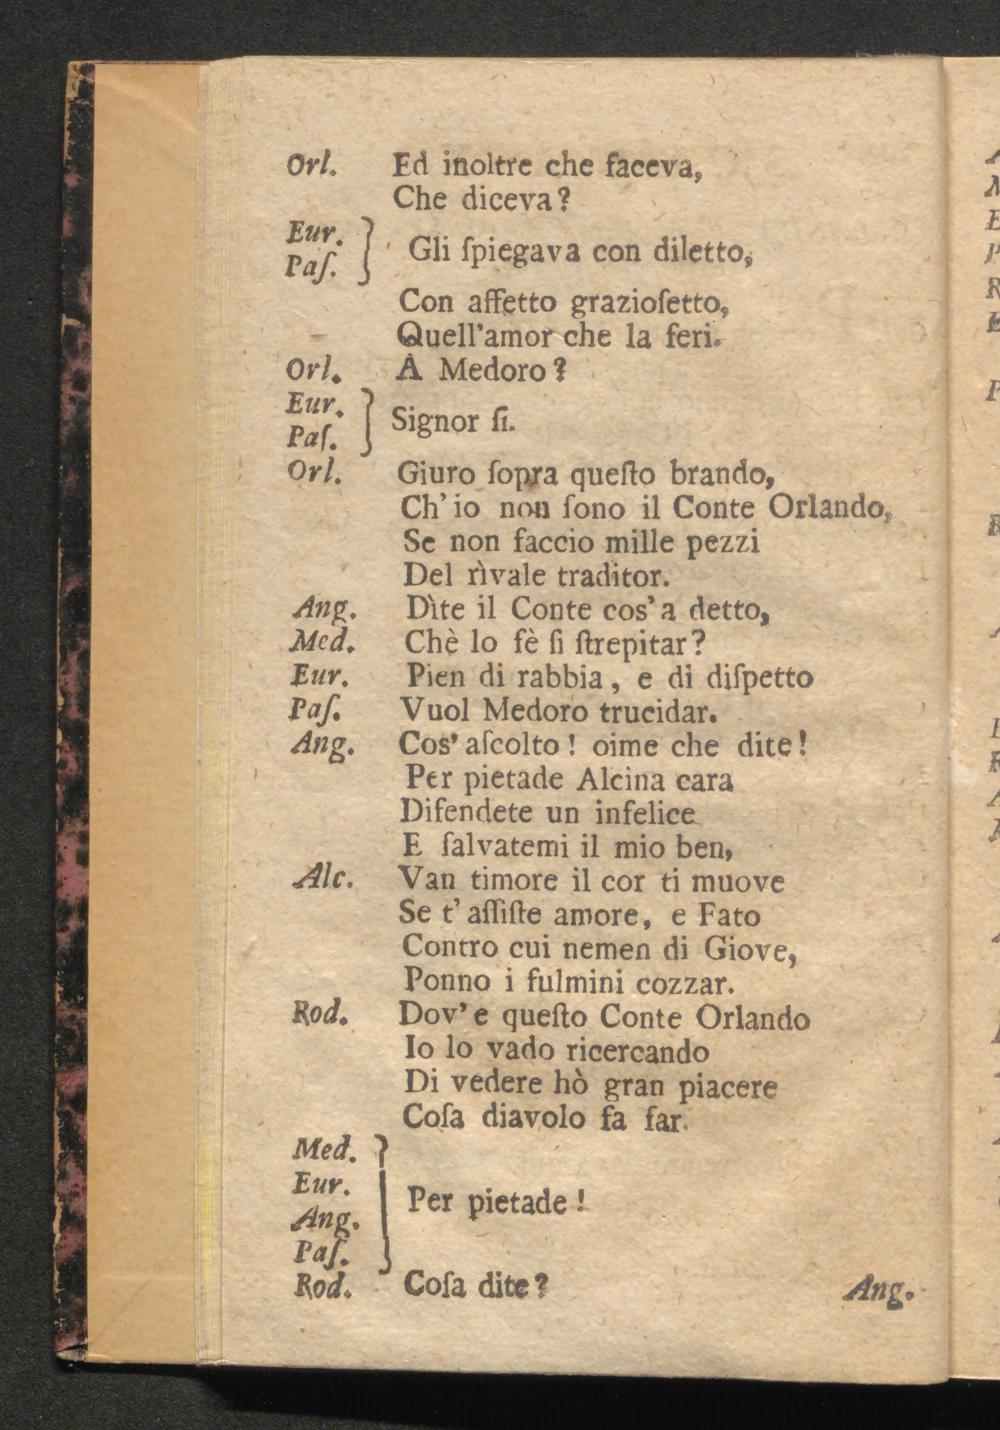 Orl. Ed inoltre che faceva,
Che diceva?
Eur.
Paſ. } Gli ſpiegava con diletto,
Con affetto grazioſetto,
Quell'amor che la feri.
Orl. A Medoro?
Eur.
Paſ. } Signor ſi.
Orl. Giuro ſopra queſto brando,
Ch' io non ſono il Conte Orlando,
Se non faccio mille pezzi
Del rìvale traditor.
Ang. Dìte il Conte cos' a detto,
Med. Chè lo fè ſi ſtrepitar?
Eur. Pien di rabbia, e di diſpetto
Paſ. Vuol Medoro trucidar.
Ang. Cos' aſcolto! oime che dite!
Per pietade Alcina cara
Difendete un infelice
E ſalvatemi il mio ben,
Alc. Van timore il cor ti muove
Se t' aſſiſte amore, e Fato
Contro cui nemen di Giove,
Ponno i fulmini cozzar.
Rod. Dov' e queſto Conte Orlando
Io lo vado ricercando
Di vedere hò gran piacere
Coſa diavolo fa far.
Med.
Eur.
Ang.
Paſ. } Per pietade!
Rod. Coſa dite?
Ang.